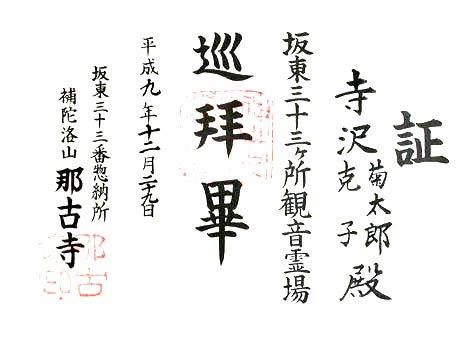 証
寺沢 菊太郎
克子 殿
坂東三十三ヶ所観音霊場
巡拝畢
平成九年十二月二九日
坂東三十三番惣納所
補陀洛山 那古寺